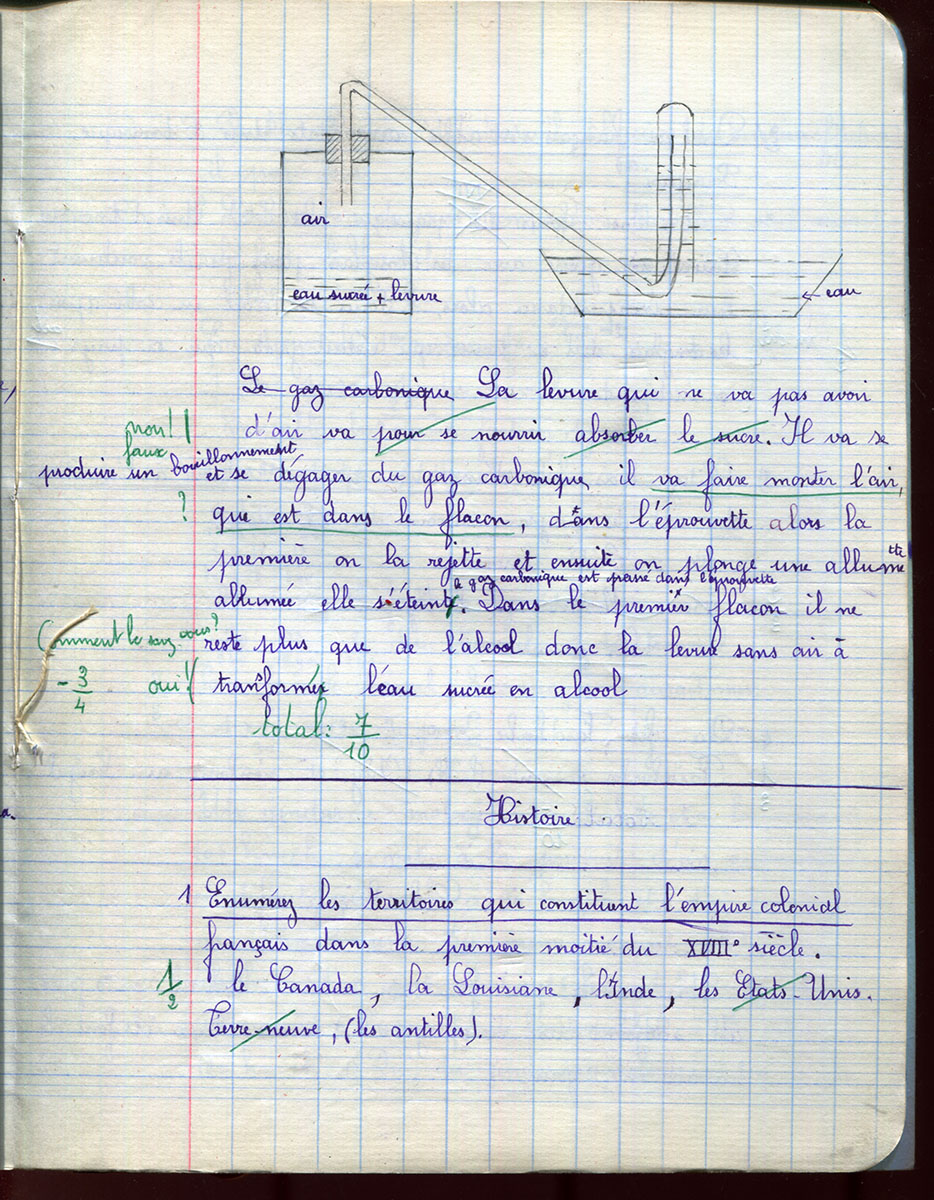 air
eau sucrée + levure
eau
Le gaz carbonique La levure qui ne va pas avoir
non! d'air va pour se nourrir absorber le sucre. Il va se
faux
produire un bouillonnement et se dégager du gaz carbonique il va faire monter l'air,
? qui est dans le flacon, dans l'éprouvette alors la
première on la rejette et ensuite on plonge une allumette
le gaz carbonique est passé dans l'éprouvette
allumée elle s'éteint. Dans le premier flacon il ne
Comment le savez-vous? reste plus que de l'álcool donc la levure sans air à
- 3/4 oui! transformé l'eau sucrée en alcool
total: 7/10
Histoire
1 Enumérez les territoires qui constituent l'émpire colonial
français dans la première moitié du XVIII° siècle.
1/2 le Canada, la Louisiane, l'Inde, les Etats-Unis.
Terre-neuve, (les antilles).